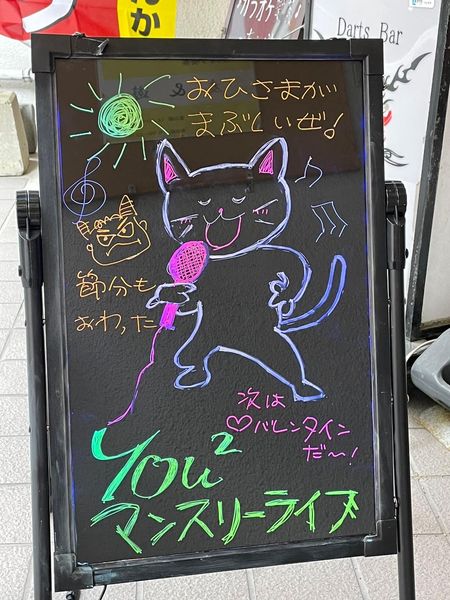 んか
カラオケ
Darts Bar
おひさまが
まぶしいぜ!
節分も
おわった
次は
♡バレンタイン
だ〜!
You²
マンスリーライブ